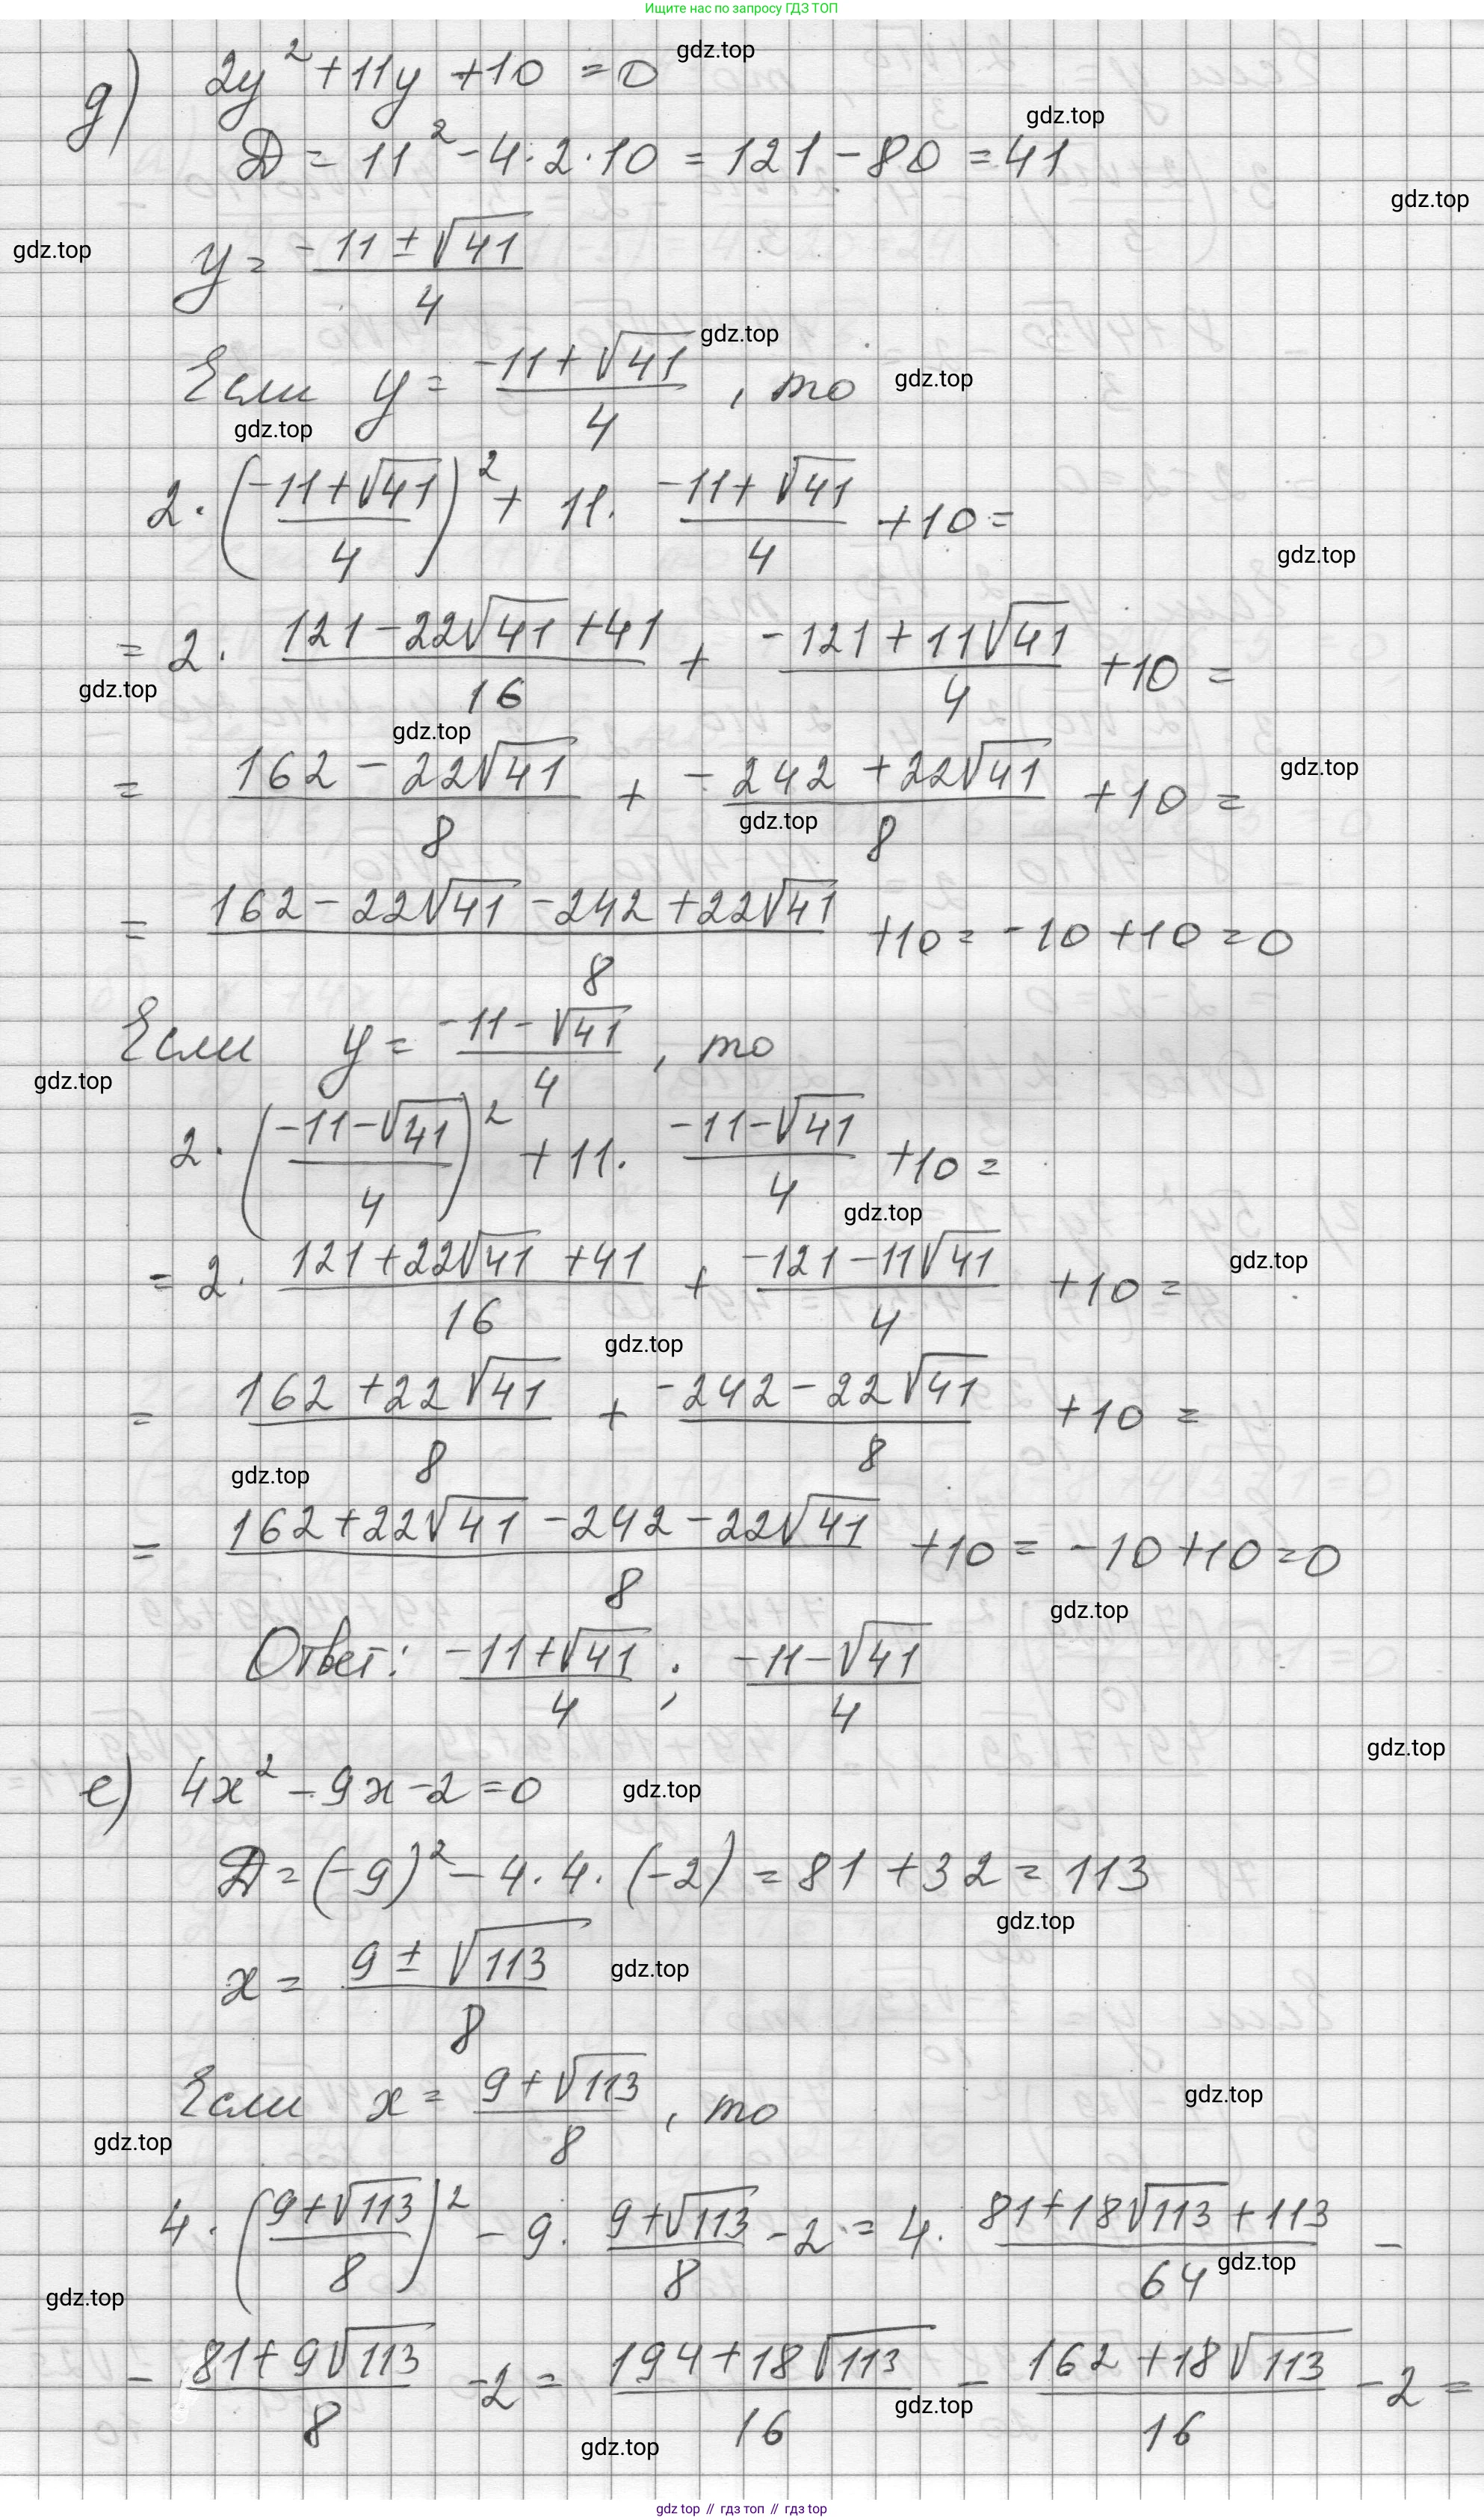 Ищите нас по запросу ГДЗ ТОП
gdz.top
д) 2y² + 11y + 10 = 0
gdz.top
D = 11² - 4·2·10 = 121 - 80 = 41
gdz.top
gdz.top
y = (-11 ± √41)/4
gdz.top
Если y = (-11 + √41)/4, то
gdz.top
gdz.top
2·((-11 + √41)/4)² + 11·(-11 + √41)/4 + 10 =
gdz.top
= 2·(121 - 22√41 + 41)/16 + (-121 + 11√41)/4 + 10 =
gdz.top
gdz.top
= (162 - 22√41)/8 + (-242 + 22√41)/8 + 10 =
gdz.top
gdz.top
= (162 - 22√41 - 242 + 22√41)/8 + 10 = -10 + 10 = 0
Если y = (-11 - √41)/4, то
gdz.top
2·((-11 - √41)/4)² + 11·(-11 - √41)/4 + 10 =
gdz.top
gdz.top
= 2·(121 + 22√41 + 41)/16 + (-121 - 11√41)/4 + 10 =
gdz.top
= (162 + 22√41)/8 + (-242 - 22√41)/8 + 10 =
gdz.top
= (162 + 22√41 - 242 - 22√41)/8 + 10 = -10 + 10 = 0
gdz.top
Ответ: (-11 + √41)/4; (-11 - √41)/4
gdz.top
е) 4x² - 9x - 2 = 0
gdz.top
D = (-9)² - 4·4·(-2) = 81 + 32 = 113
gdz.top
x = (9 ± √113)/8
gdz.top
Если x = (9 + √113)/8, то
gdz.top
gdz.top
4·((9 + √113)/8)² - 9·(9 + √113)/8 - 2 = 4·(81 + 18√113 + 113)/64 -
gdz.top
gdz.top
- (81 + 9√113)/8 - 2 = (194 + 18√113)/16 - (162 + 18√113)/16 - 2 =
gdz.top
gdz.top
gdz top // гдз топ // гдз top